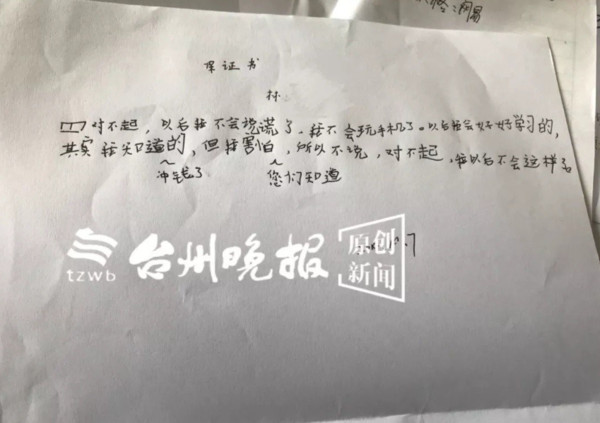 保证书
对不起，以后我不会说谎了，我不会玩手机了。以后我会好好学习的，
其实我知道的，但我害白，所以不说，对不起，我以后不会这样了
冲钱了 您们知道
tzwb 台州晚报 原创
新闻